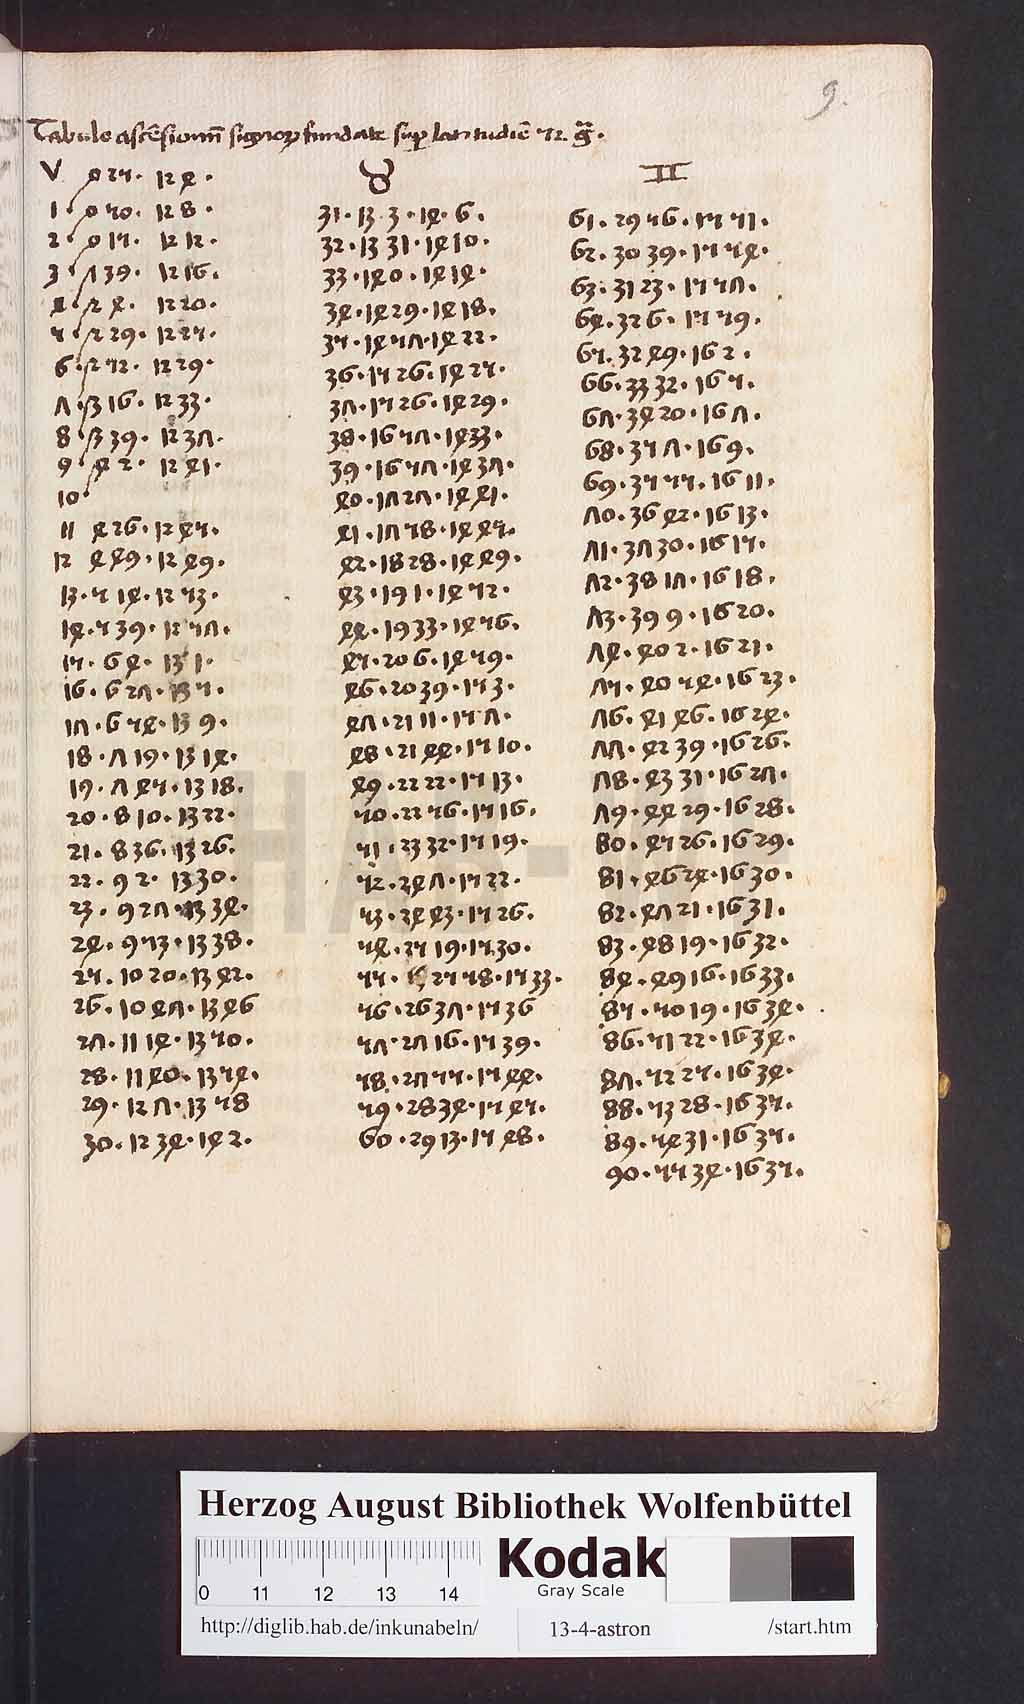 Tabule ascēsionū signoꝝ fundate suꝑ latitudiē 52. gᵃ.
♈ 0 25. 12 4.
1. 0 50. 12 8.
2. 0 15. 12 12.
3. 1 39. 12 16.
4. 2 4. 12 20.
5. 2 29. 12 25.
6. 2 52. 12 29.
7. 3 16. 12 33.
8. 3 39. 12 37.
9. 4 2. 12 41.
10.
11 4 26. 12 45.
12 4 49. 12 49.
13. 5 14. 12 53.
14. 5 39. 12 57.
15. 6 4. 13 1.
16. 6 27. 13 5.
17. 6 54. 13 9.
18. 7 19. 13 14.
19. 7 45. 13 18.
20. 8 10. 13 22.
21. 8 36. 13 26.
22. 9 2. 13 30.
23. 9 27. 13 34.
24. 9 53. 13 38.
25. 10 20. 13 42.
26. 10 47. 13 46
27. 11 14. 13 50.
28. 11 40. 13 54.
29. 12 7. 13 58
30. 12 34. 14 2.
♉
31. 13. 3. 14. 6.
32. 13 31. 14 10.
33. 14 0. 14 14.
34. 14 29. 14 18.
35. 14 57. 14 22.
36. 15 26. 14 25.
37. 15 26. 14 29.
38. 16 57. 14 33.
39. 16 57. 14 37.
40. 17 27. 14 41.
41. 17 58. 14 45.
42. 18 28. 14 49.
43. 19 1. 14 52.
44. 19 33. 14 56.
45. 20 6. 14 59.
46. 20 39. 15 3.
47. 21 11. 15 7.
48. 21 44. 15 10.
49. 22 22. 15 13.
50. 22 56. 15 16.
51. 23 32. 15 19.
52. 24 7. 15 22.
53. 24 43. 15 26.
54. 25 19. 15 30.
55. 25 58. 15 33.
56. 26 37. 15 36
57. 27 16. 15 39.
58. 27 55. 15 44.
59. 28 34. 15 45.
60. 29 13. 15 48.
♊
61. 29 56. 15 51.
62. 30 39. 15 54.
63. 31 23. 15 57.
64. 32 6. 15 59.
65. 32 49. 16 2.
66. 33 32. 16 5.
67. 34 20. 16 7.
68. 35 7. 16 9.
69. 35 55. 16 11.
70. 36 42. 16 13.
71. 37 30. 16 15.
72. 38 17. 16 18.
73. 39 9. 16 20.
74. 40 2. 16 21.
75. 40 54. 16 23.
76. 41 46. 16 24.
77. 42 39. 16 26.
78. 43 31. 16 27.
79. 44 29. 16 28.
80. 45 26. 16 29.
81. 46 24. 16 30.
82. 47 21. 16 31.
83. 48 19. 16 32.
84. 49 16. 16 33.
85. 50 19. 16 34.
86. 51 22. 16 34.
87. 52 25. 16 34.
88. 53 28. 16 35.
89. 54 31. 16 35.
90. 55 34. 16 35.
9.
HAB-
Herzog August Bibliothek Wolfenbüttel
0 11 12 13 14
Kodak
Gray Scale
http://diglib.hab.de/inkunabeln/ 13-4-astron /start.htm